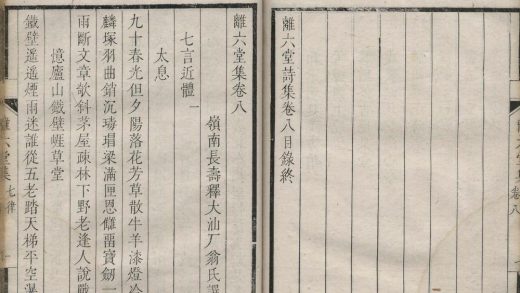 離六堂詩集卷八目錄終
離六堂集卷八
嶺南長壽釋大汕厂翁氏譔
七言近體一
太息
九十春光但夕陽落花芳草散牛羊漆燈冷
麟塚羽曲銷沉瑇瑁梁滿匣恩讎畱寶劍一
雨斷文章欹斜茅屋疎林下野老逢人說
憶廬山鐵壁崕草堂
鐵壁遥遥煙雨迷誰從五老踏天梯平空
離六堂集 七律